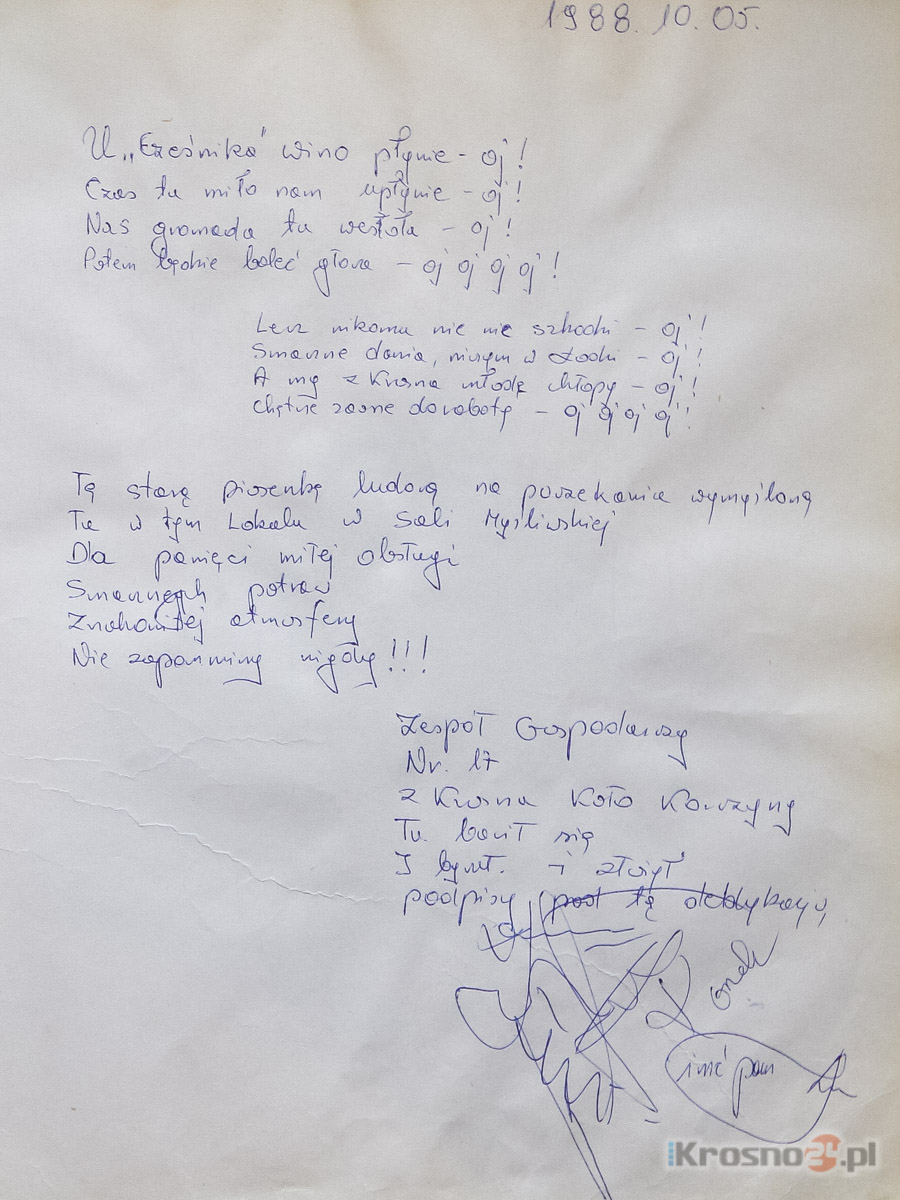 1988.10.05.
U „Cześnika" wino płynie - oj!
Czas tu miło nam upłynie - oj!
Nas gromada tu wesoła - oj!
Potem będzie boleć głowa - oj oj oj oj!
Lecz nikomu nie szkodzi - oj!
Smaczne dania, niczym w Łodzi - oj!
A my z Krosna młode chłopy - oj!
Chętne zawsze do roboty - oj oj oj oj!
Tą starą piosenkę ludową na poczekaniu wymyśloną
Tu w tym Lokalu w Sali Myśliwskiej
Dla pamięci miłej obsługi
Smacznych potraw
Znakomitej atmosfery
Nie zapomnimy nigdy!!!
Zespół Gospodarczy
Nr. 17
z Krosna Koło Korczyny
Tu bawił się
I był i złożył
podpisy pod tą dedykacją,
imć pan
iKrosno24.pl